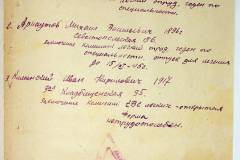 легкий труд, годен по
специальности.
2. Архипов Михаил Васильевич 1896г
Севастопольская 156
заключение комиссии легкий труд годен по
специальности, отпуск для лечения
до 15/IX-45г.
3. Калинский Иван Кириллович 1917
ул Кладбищенская 35.
Заключение комиссии ТВС легких - открытая
форма
нетрудоспособен.